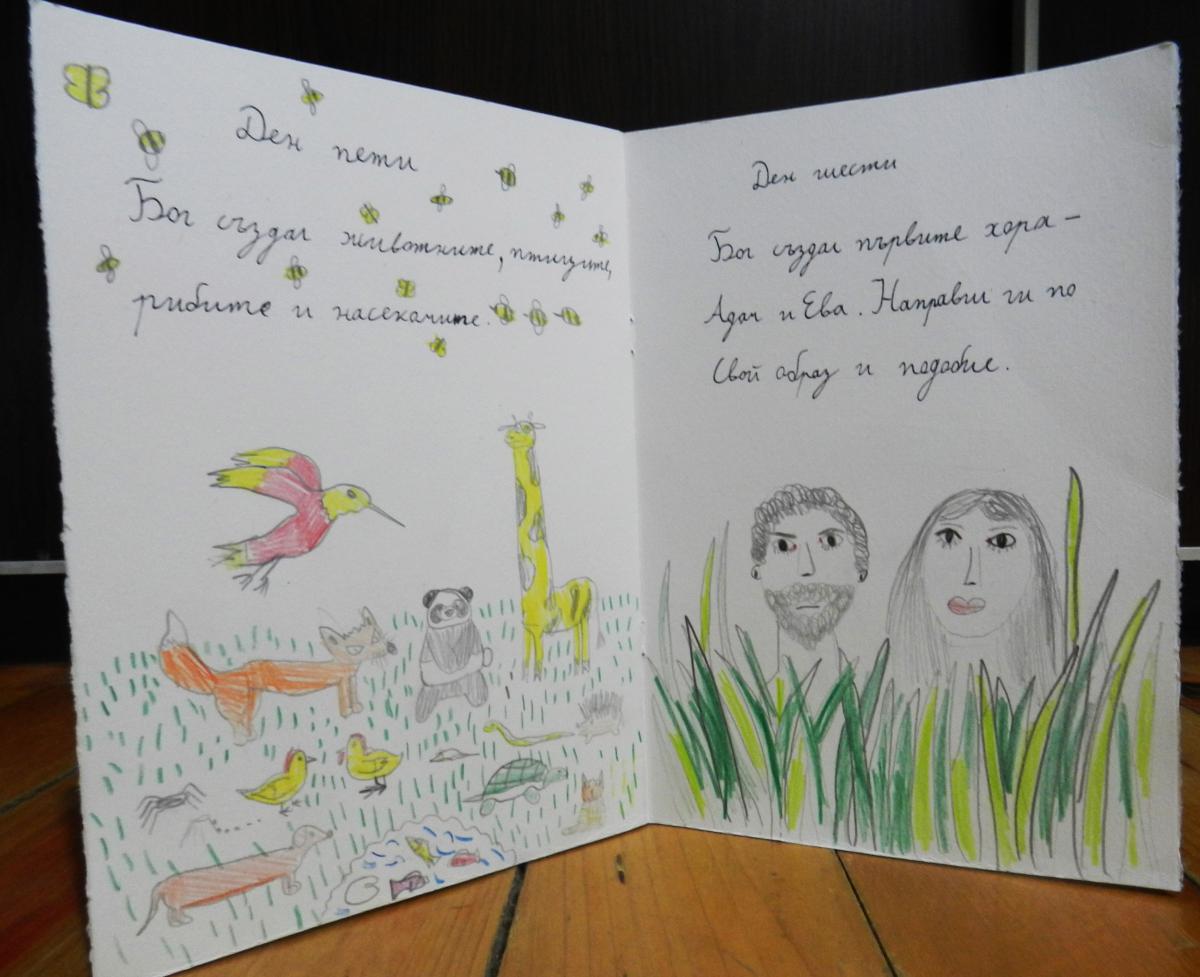 Ден пети
Бог създал животните, птиците,
рибите и насекомите.
Ден шести
Бог създал първите хора –
Адам и Ева. Направил ги по
Свой образ и подобие.